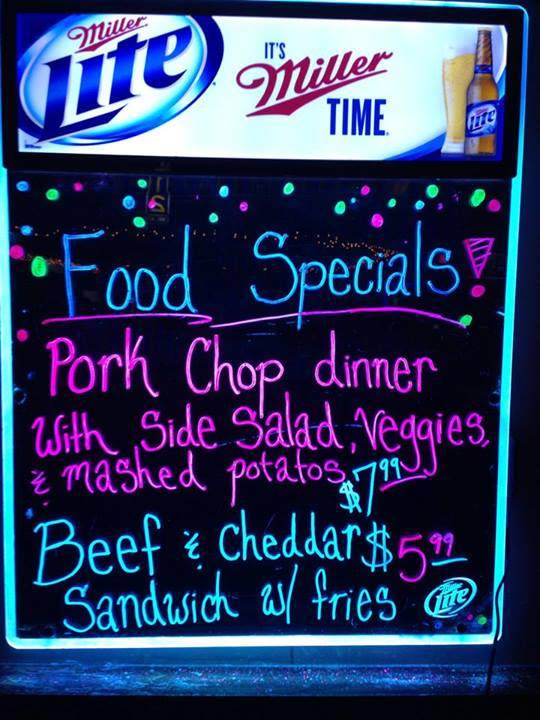 Miller
Lite
IT'S
Miller
TIME
Lite
Food Specials!
Pork Chop dinner
With Side Salad, Veggies,
& mashed potatos $7.99
Beef & Cheddar $5.99
Sandwich w/ fries
Miller
Lite